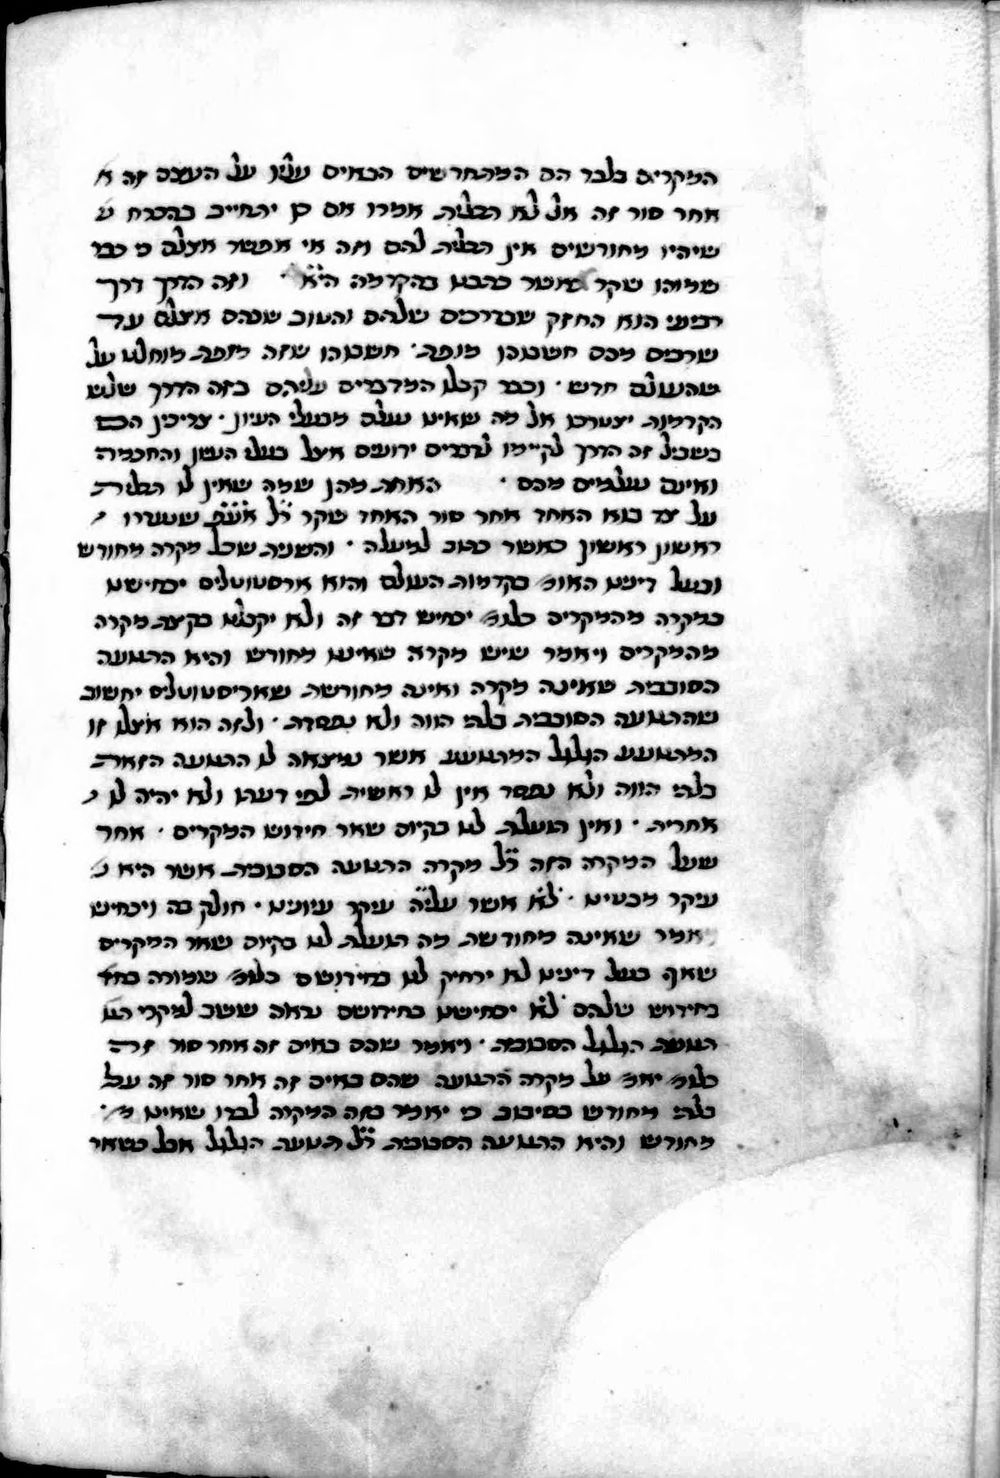 המקרים בלבד הם המתחדשים הבאים עליו על העצם זה א
אחר סור זה אל לא תכלית אמרו אם כן יתחייב בהכרח ש
שיהיו מחודשים אין תכלית להם וזה אי אפשר אצלם כי כבר
שמוהו שקר כאשר כתבנו בהקדמה הי״א ׳ וזה הדרך דרך
רביעי הוא החזק שבדרכים שלהם והטוב שבהם אצלם עד
שרבים מהם חשבוהו מופת׳ חשבוהו שזה מופת מוחלט על
שהעולם חדש ׳ וכבר קבלו המדברים עליהם בזה הדרך שלש
הקדמות יצטרכו אל מה שאינו נעלם מבעלי העיון ׳ צריכין הם
בשביל זה הדרך לקיימו לדברים ידועים אצל בעלי העיון והחכמה
ואינם נעלמים מהם ׳ האחת מהן שמה שאין לו תכלית
על צד בוא האחד אחר סור האחד שקר ר״ל שנעדרו
ראשון ראשון כאשר כתוב למעלה ׳ והשנית שכל מקרה מחודש
ובעל דיננו האומ׳ בקדמות העולם והוא ארסטוטלים יכחישנו
במקרה מהמקרים כלומ׳ יכחיש דבר זה ולא יקבלנו בקצת מקרה
מהמקרים ויאמר שיש מקרה שאינו מחודש והיא התנועה
הסובבית שאינה מקרה ואינה מחודשת שאריסטוטלים יחשוב
שהתנועה הסובבית בלתי הווה ולא נפסדת ׳ ולזה הוא אצלו זו
המתנועע הגלגל המתנועע אשר נמצאה לו התנועה הזאת
בלתי הווה ולא נפסד אין לו ראשית לפי דעתו ולא יהיה לו
אחרית ׳ ואין תועלת לנו בקיום שאר חידוש המקרים ׳ אחר
שעל המקרה הזה ר״ל מקרה התנועה הסבובית אשר היא
עיקר מבטינו ׳ ל״א אשר עליה עיקר עיונינו ׳ חולק בה ויכחיש
ויאמר שאינה מחודשת מה תועלת לנו בקיום שאר המקרים
שאף בעל דיננו לא ירחיק לנו בחידושם כלומ׳ שמודה בהם
בחידוש שלהם ל״א יכחישנו בחידושם נראה ששב למקרי
תנועת הגלגל הסבובית ׳ ויאמר שהם באים זה אחר סור זה
כלומ׳ יאמ׳ על מקרה התנועה שהם באים זה אחר סור זה על
בלתי מחודש בסיבוב כי יאמר בזה המקרה לבדו שאינו מ׳
מחודש והיא התנועה הסבובית ר״ל תנועת הגלגל אבל בשאר